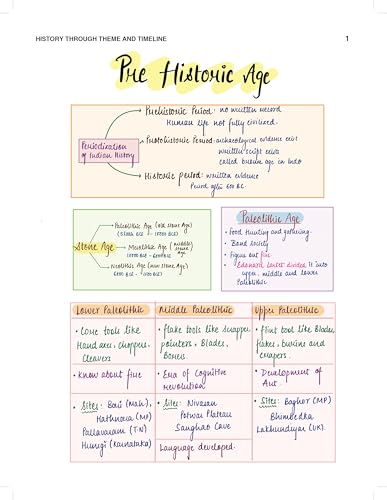 HISTORY THROUGH THEME AND TIMELINE
1
Pre Historic Age
Periodization
of Indian History
Prehistoric Period: no written record
Human life not fully civilized.
Protohistoric Period: archaeological evidence exist
written script exists
called bronze age in Indo
Historic period: written evidence
Period after 600 BC
Stone Age
Paleolithic Age (old stone Age)
Mesolithic Age (middle stone Age)
Neolithic Age (new stone Age)
Paleolithic Age
• Food Hunting and gathering.
• Band society
• Figure out fire
• Edouard Lartet divided it into
upper, middle and lower
Paleolithic
Lower Paleolithic
• Core tools like
Hand axe, choppers,
Cleavers
• Know about fire
• Sites: Bori (Mah),
Hathnora (MP)
Pallavaram (TN)
Hunsgi (Karnataka)
Middle Paleolithic
• flake tools like scrapper,
pointers, Blades,
Borers.
• Era of Cognitive
revolution
• Sites: Nivasan
Potwar Plateau
Sanghao Cave
Language developed.
Upper Paleolithic
• flint tools like Blades,
flakes, burins and
scrapers.
• Development of
Art.
• Sites: Baghor (MP)
Bhimbedka
Lakhundiyar (UK).